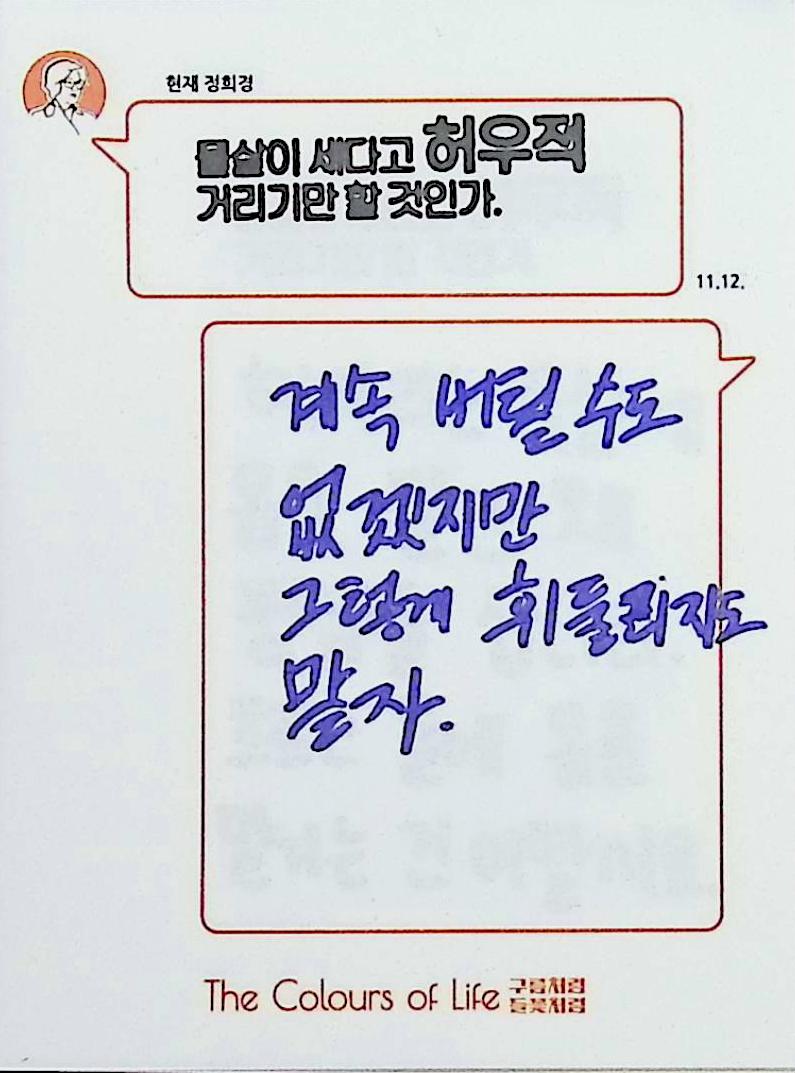 현재 정희경
물살이 세다고 허우적
거리기만 할 것인가.
11.12.
계속 버틸 수도
없겠지만
그렇게 휘둘리지도
말자.
The Colours of Life 구름처럼
들꽃처럼